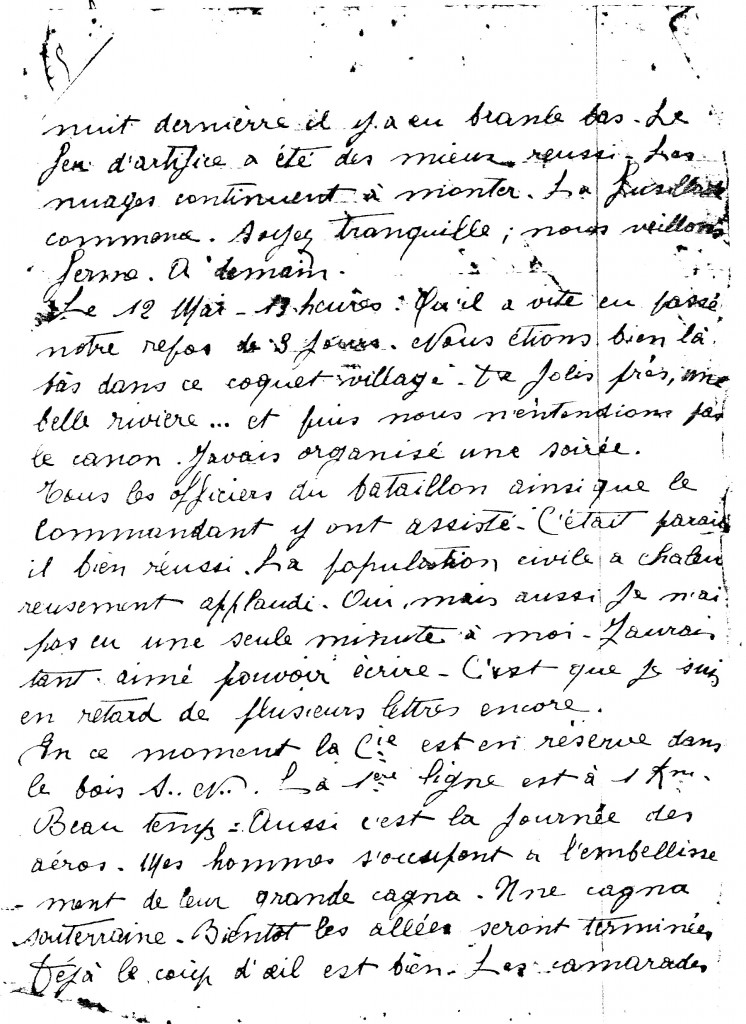 5
nuit dernière il y a eu branle bas. Le
feu d'artifice a été des mieux reussi. Les
nuages continuent à monter. La fusillade
commence. Soyez tranquille ; nous veillons
ferme. A demain.
Le 12 Mai - 13 heures. Qu'il a vite eu passé
notre repos de 3 jours. Nous étions bien là
bàs dans ce coquet village. De jolis prés, une
belle rivière... et puis nous n'entendions pas
le canon. J'avais organisé une soirée.
Tous les officiers du bataillon ainsi que le
Commandant y ont assisté. C'était parait
il bien réussi. La population civile a chaleu
reusement applaudi. Oui, mais aussi je n'ai
pas eu une seule minute à moi. J'aurais
tant aimé pouvoir écrire. C'est que je suis
en retard de plusieurs lettres encore.
En ce moment la Cie est en réserve dans
le bois S. N. La 1ère ligne est à 1 Km.
Beau temps = Aussi c'est la journée des
aéros. Mes hommes s'occupent à l'embellisse
- ment de leur grande cagna. Une cagna
souterraine. Bientot les allées seront terminées
Déjà le coup d'œil est bien. Les camarades